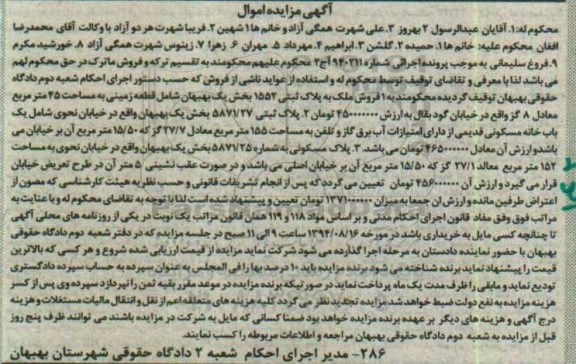 آگهی مزایده اموال
محکوم له: ۱. آقایان عبدالرسول ۲ بهروز ۳. علی شهرت همگی آزاد و خانم ها ۱ شهین ۲. فریبا شهرت هر دو آزاد با وکالت آقای محمدرضا
افغان محکوم علیه: خانم ها ۱. حمیده ۲. گلشن ۳. ابراهیم ۴. مهرداد ۵. مهران ۶. زهرا ۷. زینوس شهرت همگی آزاد ۸. خورشید مکرم
۹. فروغ سلیمانی به موجب پرونده اجرائی شماره ۹۴۰۲۱۱ آج ۲ محکوم علیهم محکومند به تقسیم ترکه و فروش ماترک در حق محکوم لهم
می باشد لذا با معرفی و تقاضای توقیف توسط محکوم له و استفاده از عواید ناشی از فروش که حسب دستور اجرای احکام شعبه دوم دادگاه
حقوقی بهبهان توقیف گردیده محکومند به ۱ فروش ملک به پلاک ثبتی ۱۵۵۲ بخش یک بهبهان شامل قطعه زمینی به مساحت ۴۵ متر مربع
معادل ۸ گز واقع در خیابان گود بقال به ارزش ۴۵۰۰۰۰۰۰ تومان ۲. پلاک ثبتی ۵۸۷۱/۲۷ بخش یک بهبهان واقع در خیابان نحوی شامل یک
باب خانه مسکونی قدیمی از دارای امتیازات آب برق گاز و تلفن به مساحت ۱۵۵ متر مربع معادل ۲۷/۷ گز که ۱۵/۵۰ متر مربع آن بر خیابان می
باشد و ارزش آن معادل ۴۶۵۰۰۰۰۰۰ تومان می باشد. ۳. پلاک مسکونی به شماره ۵۸۷۱/۲۵ بخش یک بهبهان واقع در خیابان نحوی به مساحت
۱۵۲ متر مربع معالد ۲۷/۱ گز که ۱۵/۵۰ متر مربع آن بر خیابان اصلی می باشد و در صورت عقب نشینی ۵ متر آن در طرح تعریض خیابان
قرار می گیرد و ارزش آن ۴۵۶۰۰۰۰۰۰ تومان تعیین می گردد که پس از انجام تشریفات قانونی و حسب نظریه هیئت کارشناسی که مصون از
اعتراض طرفین مانده و ارزش ان جمعا به میزان ۱۳۷۱۰۰۰۰۰۰ تومان تعیین و پیشنهاد شده است لذا با توجه به تقاضای محکوم له و با عنایت به
مراتب فوق وفق مفاد قانون اجرای احکام مدنی و بر اساس مواد ۱۱۸ و ۱۱۹ همان قانون مراتب یک نوبت در یکی از روزنامه های محلی آگهی
تا چنانچه کسی مایل به خریداری باشد در مورخه ۱۳۹۴/۰۸/۱۶ ساعت ۹ الی ۱۱ صبح در جلسه مزایده که در دفتر شعبه دوم دادگاه حقوقی
بهبهان با حضور نماینده دادستان به مرحله اجرا گذارده می شود شرکت نماید مزایده از قیمت ارزیابی شده شروع و هر کسی که بالاترین
قیمت را پیشنهاد نماید برنده شناخته می شود برنده مزایده باید ۱۰ درصد بها را فی المجلس به عنوان سپرده به حساب سپرده دادگستری
تودیع نماید و مابقی را ظرف مدت یک ماه پرداخت نماید در صورتیکه برنده مزایده در موعد مقرر بقیه ثمن را نپردازد سپرده وی پس از کسر
هزینه مزایده به نفع دولت ضبط خواهد شد مزایده تجدید نظر می گردد کلیه هزینه های متعلقه اعم از نقل و انتقال مالیات مستغلات و هزینه
درج آگهی و هزینه های دیگر بر عهده برنده مزایده خواهد بود ضمنا کسانی که مایل به شرکت در مزایده باشند می توانند ظرف پنج روز
قبل از مزایده به شعبه دوم دادگاه حقوقی بهبهان مراجعه و اطلاعات مربوطه را کسب نمایند.
۲۸۶- مدیر اجرای احکام شعبه ۲ دادگاه حقوقی شهرستان بهبهان